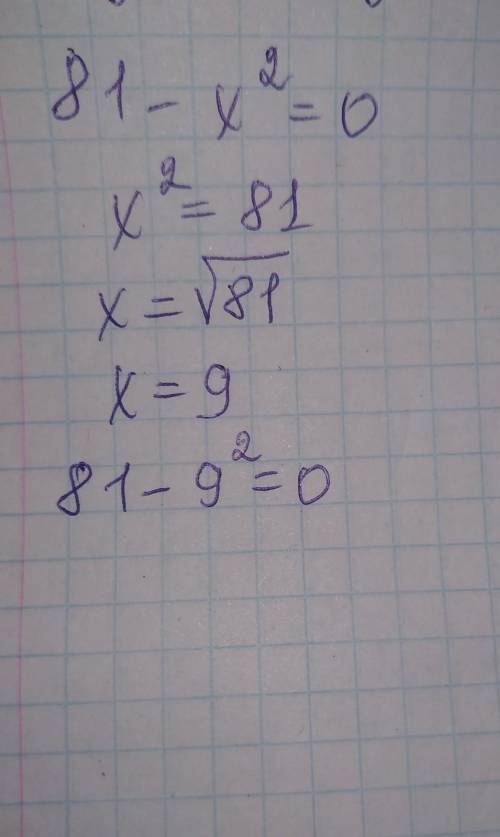 81 - x² = 0
x² = 81
x = √81
x = 9
81 - 9² = 0